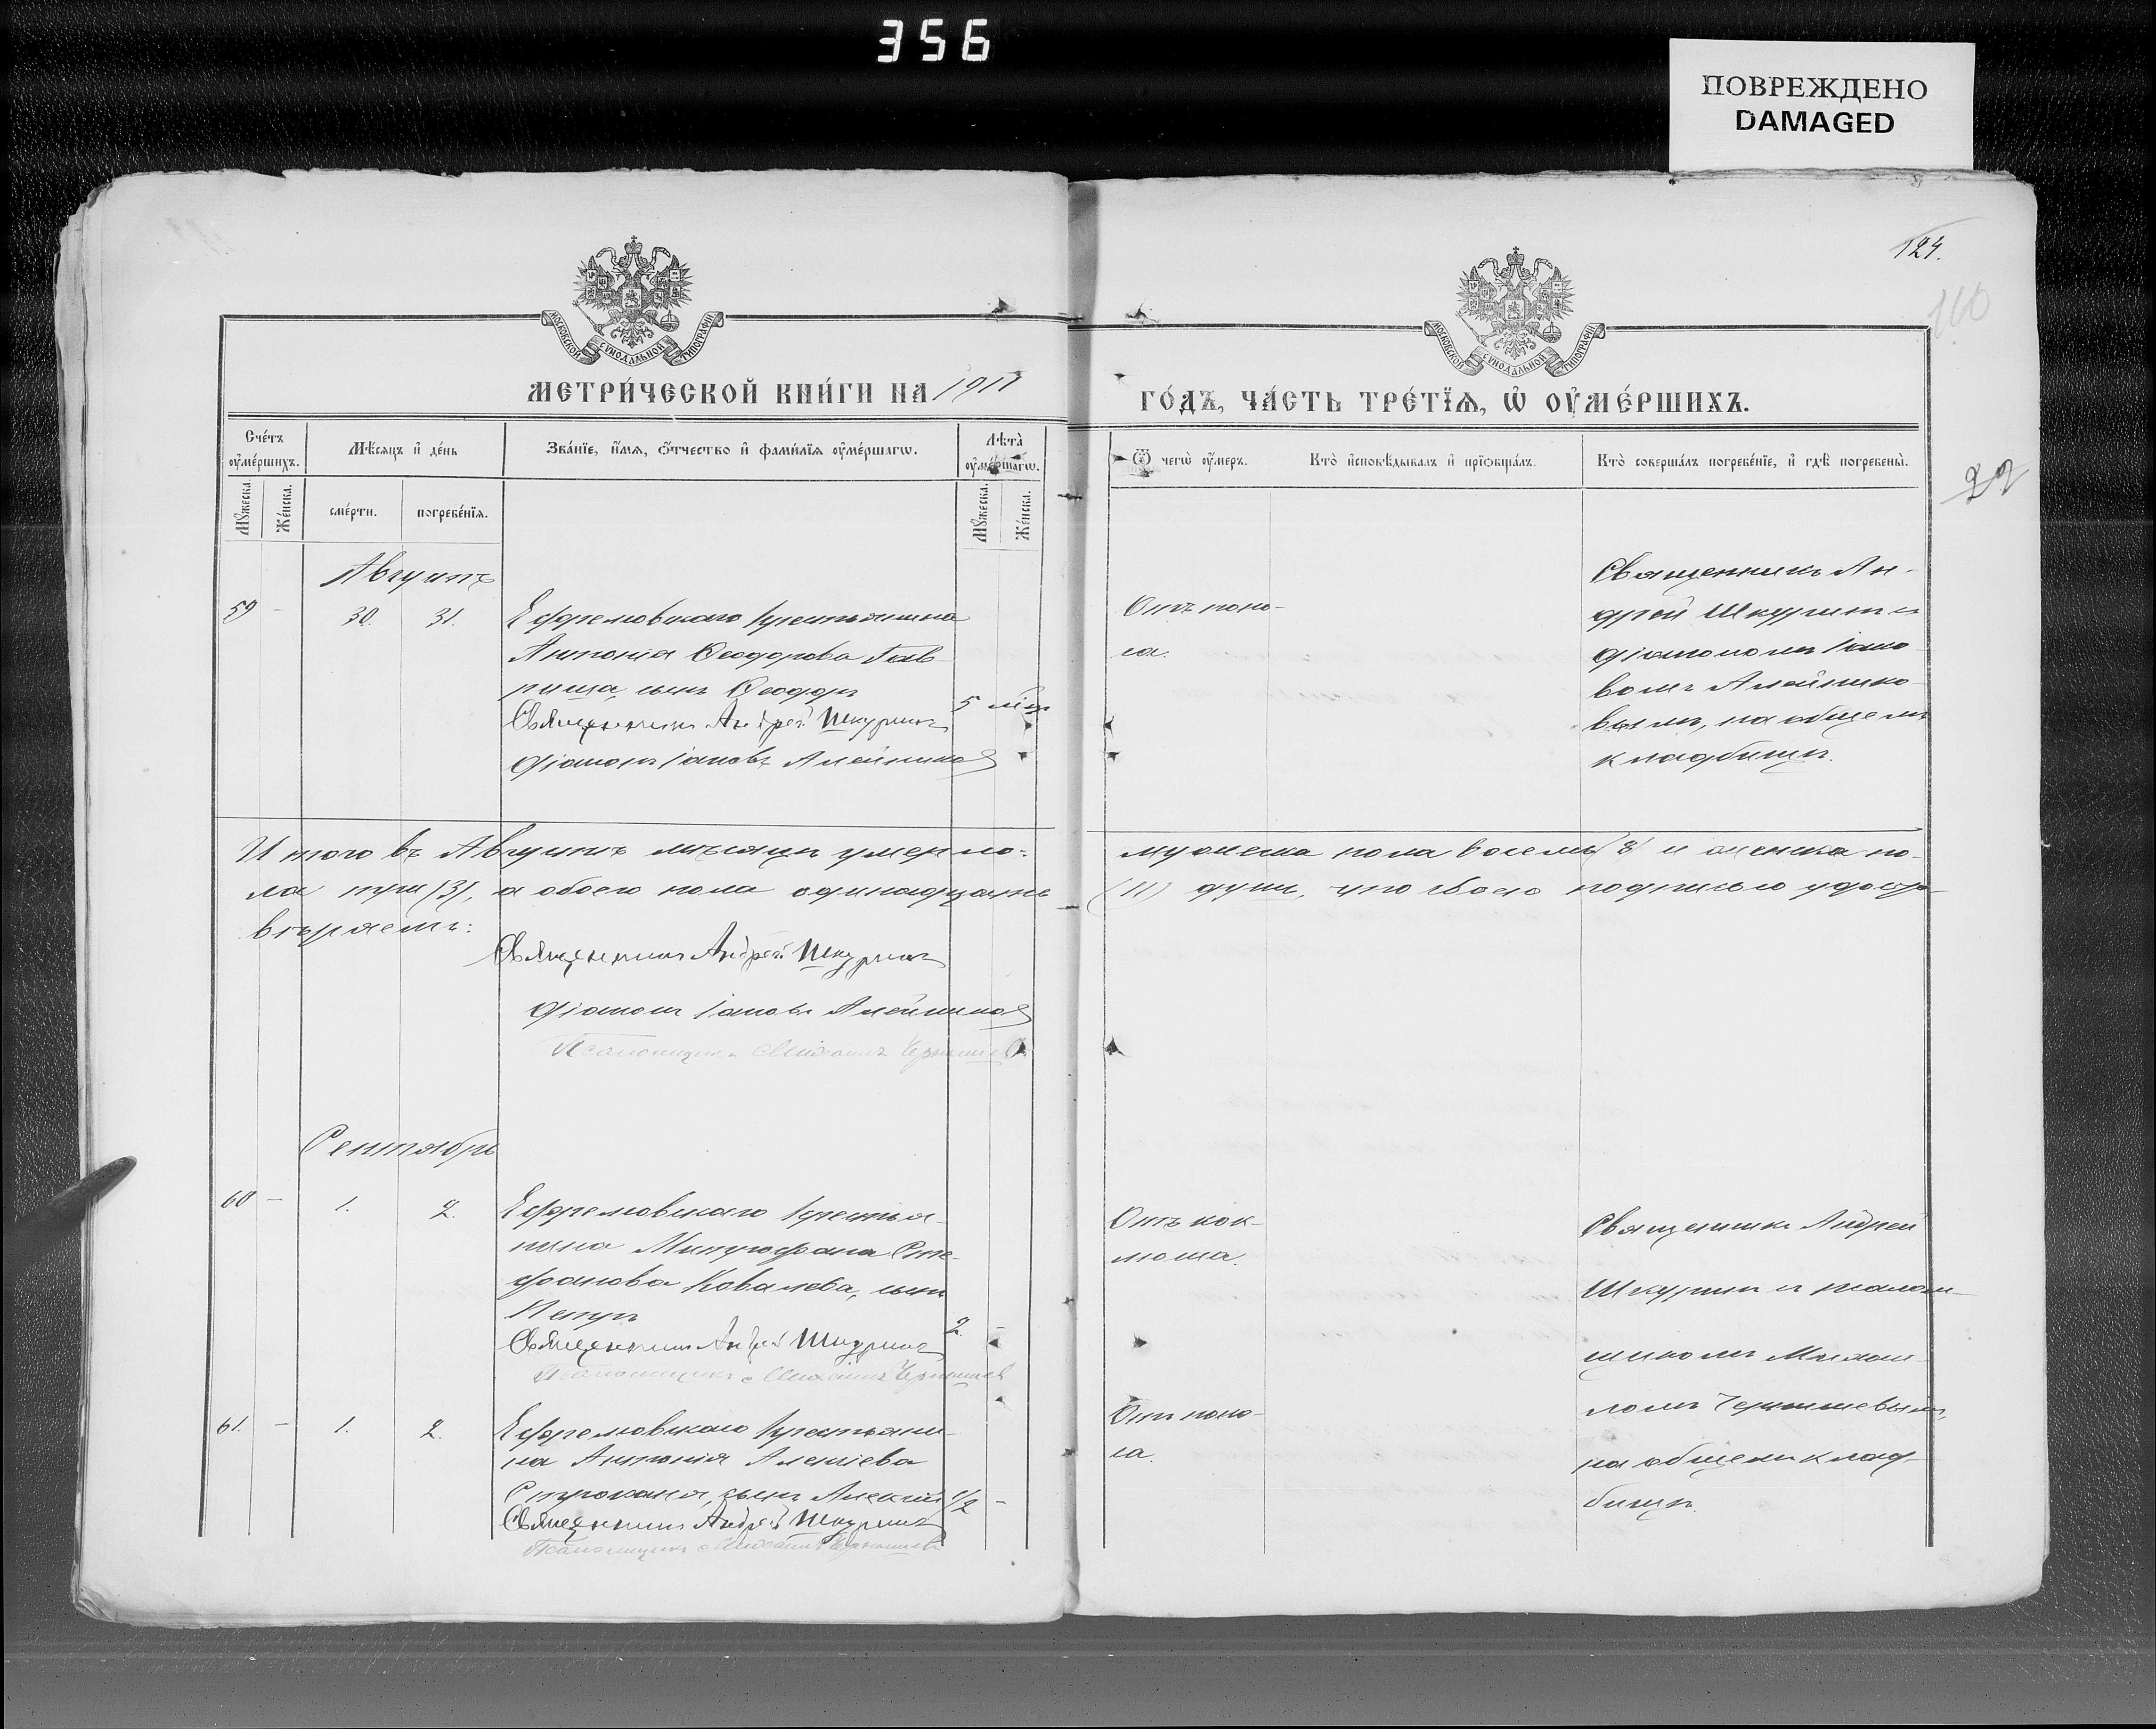 356
ПОВРЕЖДЕНО
DAMAGED
124.
160
МОСКОВСКОЙ СУНОДАЛЬНОЙ ТИПОГРАФІИ
МОСКОВСКОЙ СУНОДАЛЬНОЙ ТИПОГРАФІИ
МЕТРИ́ЧЕСКОЙ КНИ́ГИ НА 1911
ГО́ДЪ, ЧА́СТЬ ТРЕ́ТЇѦ, Ѡ ОУ҆МЕ́РШИХЪ.
Сче́тъ оу҆ме́ршихъ.
Мѣ́сѧцъ и҆ де́нь
Зва́нїе, и҆́мѧ, ѻ҆́тчество и҆ фами́лїѧ оу҆ме́ршагѡ.
Лѣта̀ оу҆ме́ршагѡ.
Мꙋ́жеска.
Же́нска.
сме́рти.
погребе́нїѧ.
Мꙋ́жеска.
Же́нска.
Ѿ чегѡ̀ оу҆́меръ.
Кто̀ и҆сповѣ́дывалъ и҆ прїѡбща́лъ.
Кто̀ соверша́лъ погребе́нїе, и҆ гдѣ̀ погребены̀.
22
Августъ
59 - 30. 31. Ефремовскаго крестьянина
Антонія Ѳеодорова Гав-
риша, сынъ Ѳеодоръ
5 мѣс
Священникъ Андрей Шкуринъ
Діаконъ Іаковъ Алейников
Отъ поно-
са.
Священникъ Ан-
дрей Шкуринъ и
діакономъ Іако-
вомъ Алейнико-
вымъ, на общемъ
кладбищѣ.
Итого въ Августѣ мѣсяцѣ умерло:
мужеска пола восемь (8) и женска по-
ла три (3), а обоего пола одинадцать
(11) душъ, что своею подписью удосто-
вѣряемъ:
Священникъ Андрей Шкуринъ
Діаконъ Іаковъ Алейников
Псаломщикъ Михаилъ Чернышевъ
Сентябрь
60 - 1. 2. Ефремовскаго крестья-
нина Митрофана Сте-
фанова Ковалева, сынъ
Петръ
2. -
Священникъ Андрей Шкуринъ
Псаломщикъ Михаилъ Чернышев
Отъ кок-
люша.
Священникъ Андрей
Шкуринъ и псалом-
щикомъ Михаи-
ломъ Чернышевымъ,
на общемъ клад-
бищѣ.
61. - 1. 2. Ефремовскаго крестьяни-
на Антонія Алексіева
Строканя, сынъ Алексій 1/2 -
Священникъ Андрей Шкуринъ
Псаломщикъ Михаилъ Чернышевъ
Отъ поно-
са.